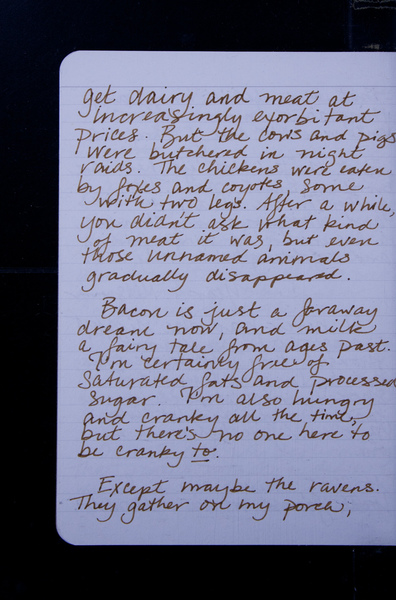 get dairy and meat at
increasingly exorbitant
prices. But the cows and pigs
were butchered in night
raids. The chickens were eaten
by foxes and coyotes, some
with two legs. After a while,
you didn't ask what kind
of meat it was, but even
those unnamed animals
gradually disappeared.
Bacon is just a faraway
dream now, and milk
a fairy tale from ages past.
I'm certainly free of
saturated fats and processed
sugar. I'm also hungry
and cranky all the time,
but there's no one here to
be cranky to.
Except maybe the ravens.
They gather on my porch,